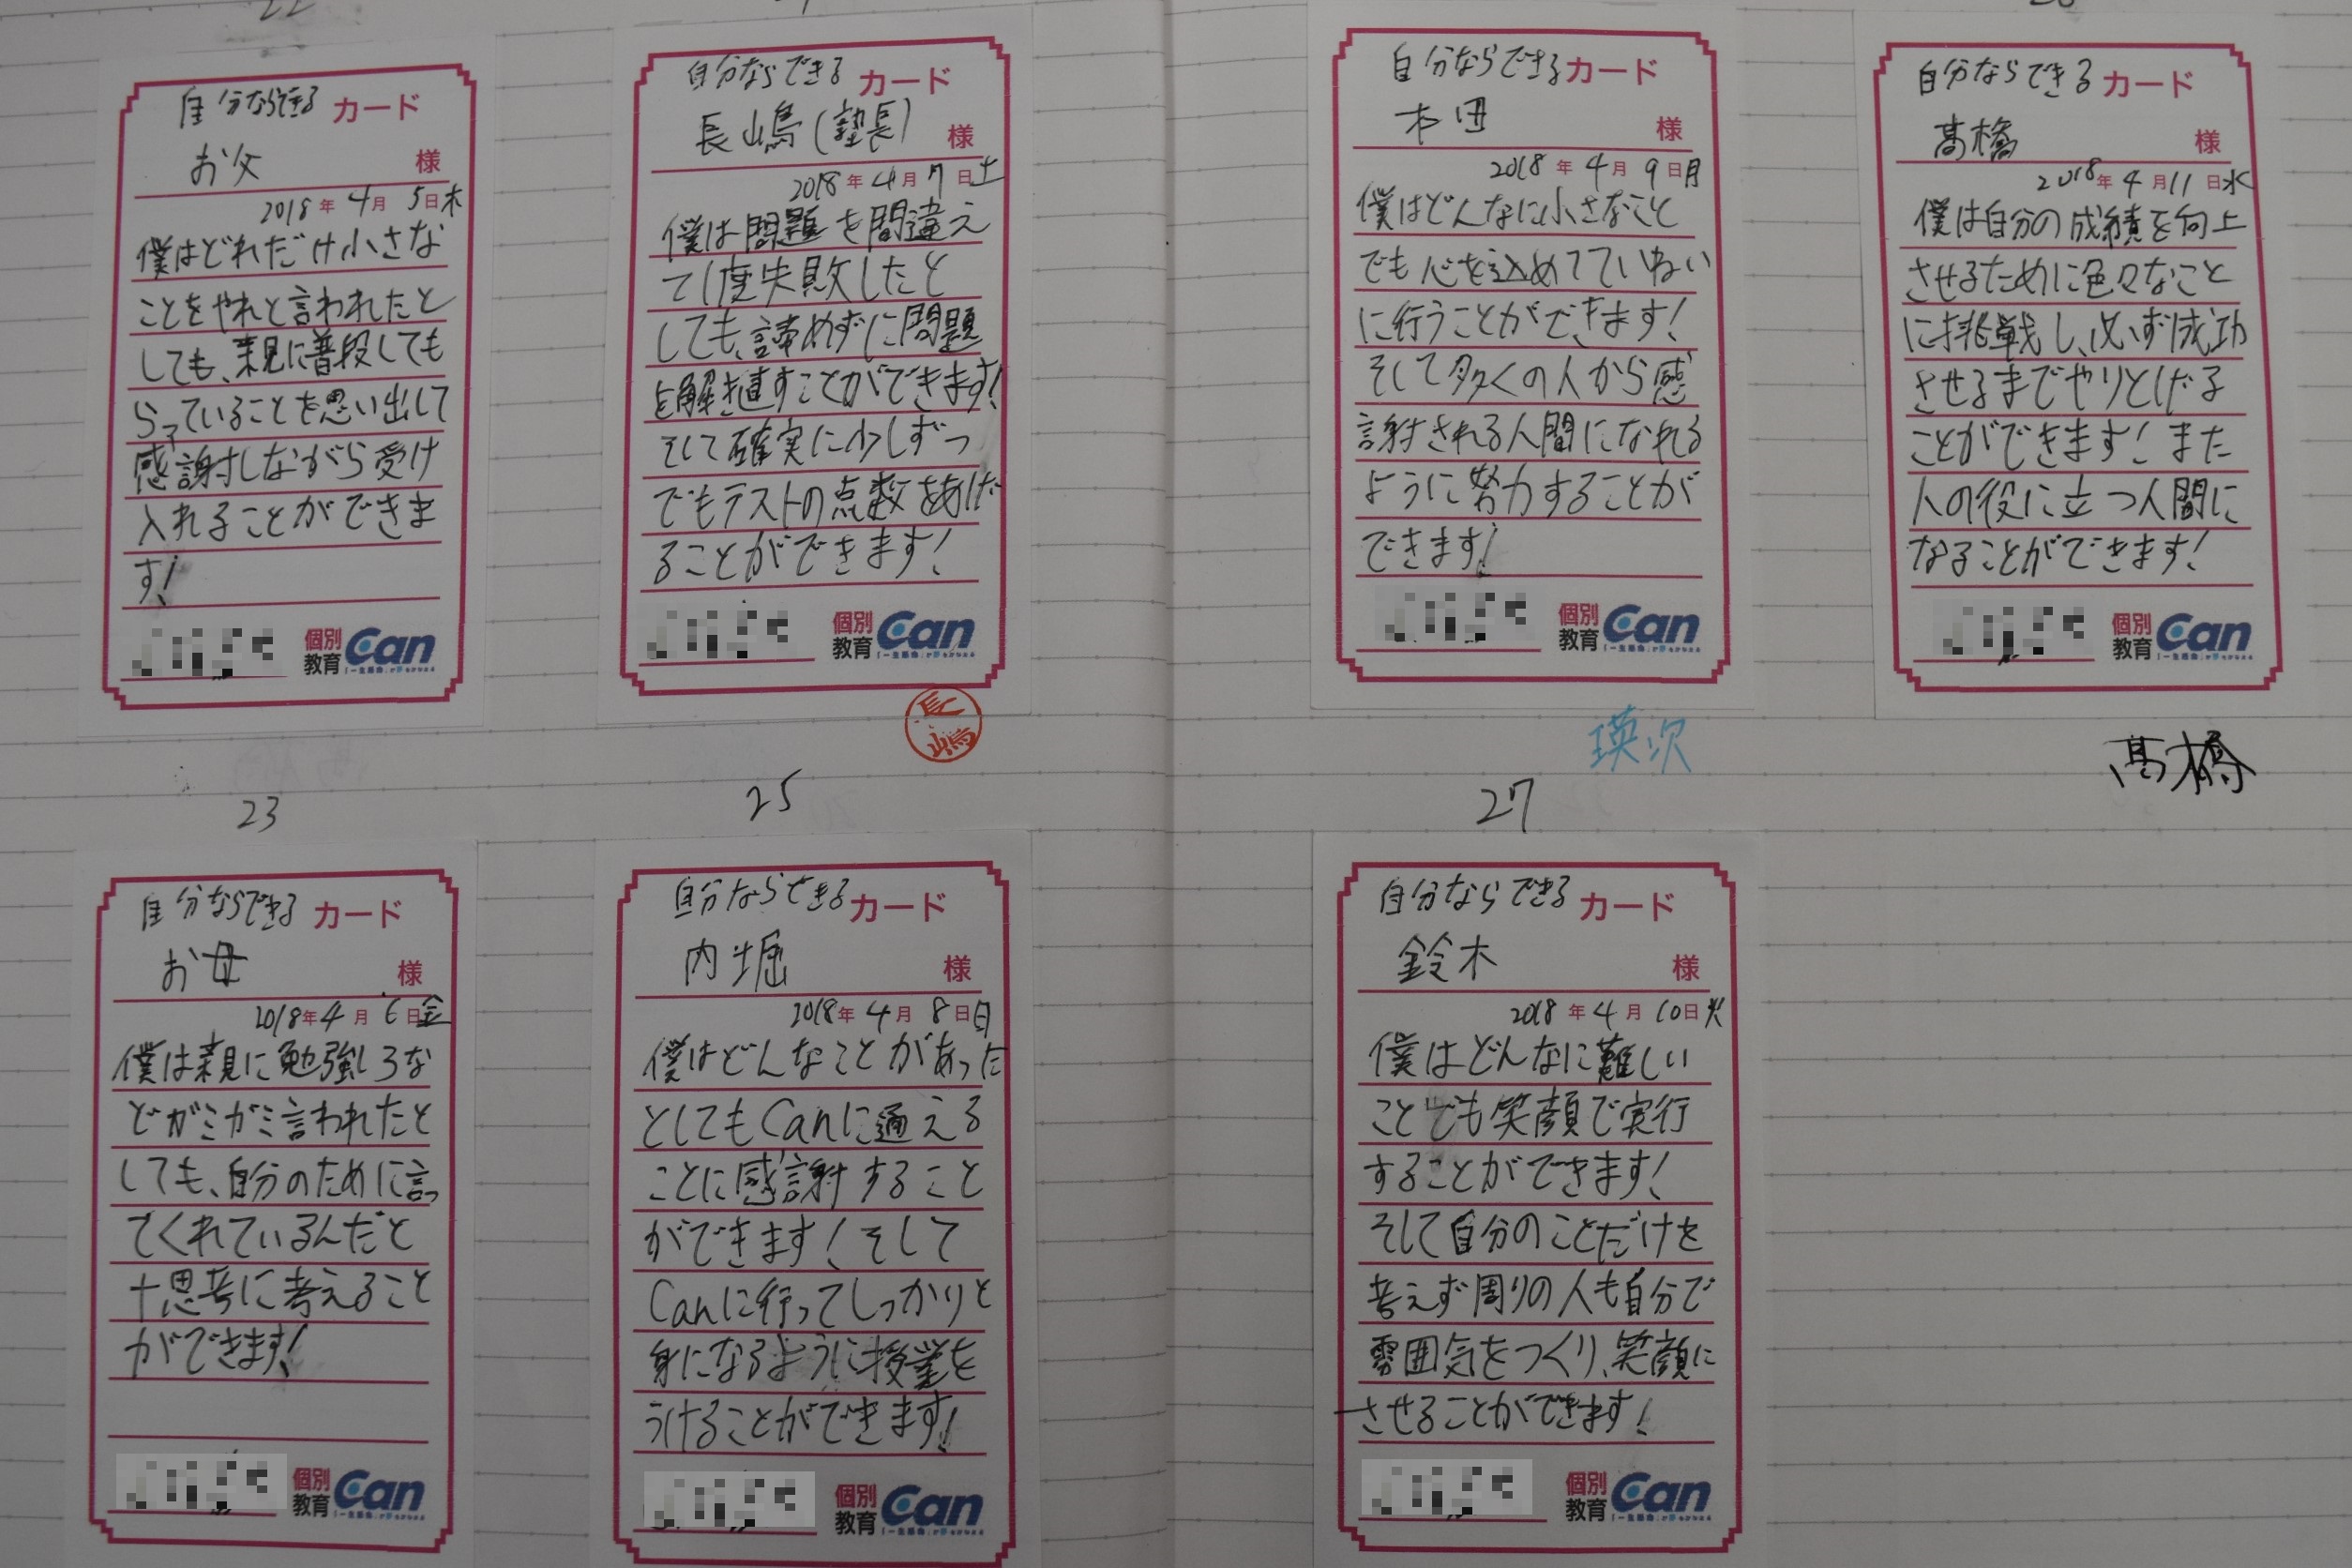 22
自分ならできるカード
お父 様
2018年4月5日木
僕はどれだけ小さな
ことをやれと言われたと
しても、親に普段しても
らっていることを思い出して
感謝しながら受け
入れることができま
す!
個別教育 Can
自分ならできるカード
長嶋(塾長) 様
2018年4月7日土
僕は問題を間違え
て1度失敗したと
しても、諦めずに問題
を解き直すことができます!
そして確実に少しずつ
でもテストの点数をあげ
ることができます!
個別教育 Can
長嶋
自分ならできるカード
本田 様
2018年4月9日月
僕はどんなに小さなこと
でも心を込めてていねい
に行うことができます!
そして多くの人から感
謝される人間になれる
ように努力することが
できます!
個別教育 Can
瑛次
自分ならできるカード
髙橋 様
2018年4月11日水
僕は自分の成績を向上
させるために色々なこと
に挑戦し、必ず成功
させるまでやりとげる
ことができます!また
人の役に立つ人間に
なることができます!
個別教育 Can
髙橋
23
自分ならできるカード
お母 様
2018年4月6日金
僕は親に勉強しろな
どガミガミ言われたと
しても、自分のために言っ
てくれているんだと
+思考に考えること
ができます!
個別教育 Can
25
自分ならできるカード
内堀 様
2018年4月8日日
僕はどんなことがあった
としてもCanに通える
ことに感謝すること
ができます!そして
Canに行ってしっかりと
身になるように授業を
うけることができます!
個別教育 Can
27
自分ならできるカード
鈴木 様
2018年4月10日火
僕はどんなに難しい
ことでも笑顔で実行
することができます!
そして自分のことだけを
考えず周りの人も自分で
雰囲気をつくり、笑顔に
させることができます!
個別教育 Can